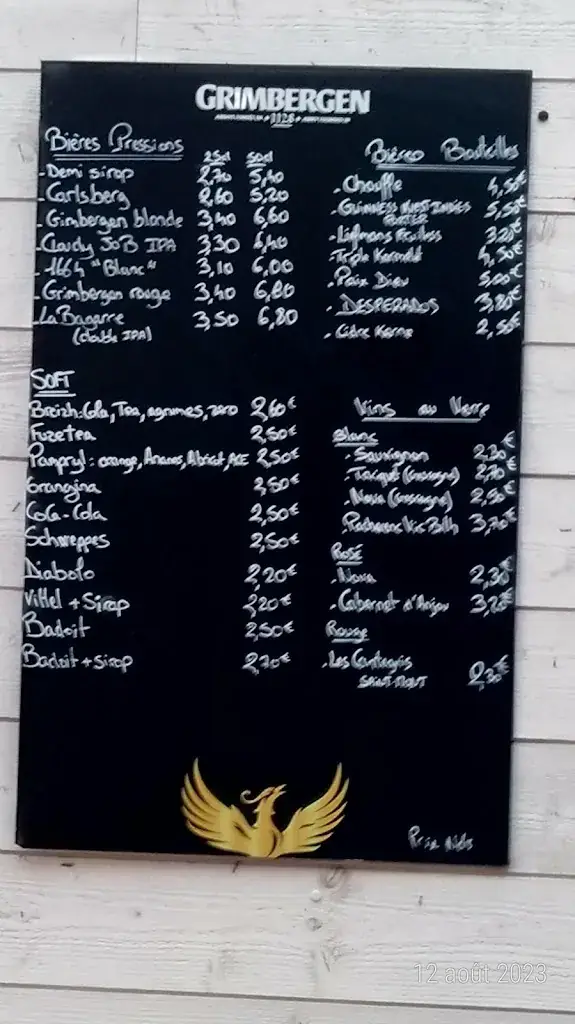 GRIMBERGEN
1128
Bières Pressions
25cl 50cl
- Demi sirop 2,70 5,40
- Carlsberg 2,60 5,20
- Grimbergen blonde 3,40 6,60
- Cloudy JOB IPA 3,30 6,40
- 1664 "Blanc" 3,10 6,00
- Grimbergen rouge 3,40 6,80
- La Bagarre 3,50 6,80
(double IPA)
SOFT
Breizh: Cola, Tea, agrumes, zero 2,60€
Fuzetea 2,50€
Pampryl: orange, Ananas, Abricot, ACE 2,50€
Orangina 2,50€
Coca-Cola 2,50€
Schweppes 2,50€
Diabolo 2,20€
Vittel + Sirop 2,20€
Badoit 2,50€
Badoit + sirop 2,70€
Bières Bouteilles
- Chouffe 4,50€
- GUINNESS WEST INDIES 5,50€
PORTER
- Liefmans 3,20€
- Triple Karmeliet 4,50€
- Paix Dieu 5,00€
- DESPERADOS 3,80€
- Cidre Kerne 2,50€
Vins au Verre
Blanc €
- Sauvignon 2,30
- Tariquet (Gascogne) 2,70€
- Nova (Gascogne) 2,50€
- Pacherenc Vic Bilh 3,70€
Rosé
- Nova 2,30€
- Cabernet d'Anjou 3,20€
Rouge
- Les 2,30€
SAINT-MONT
Prix nets
12 août 2023